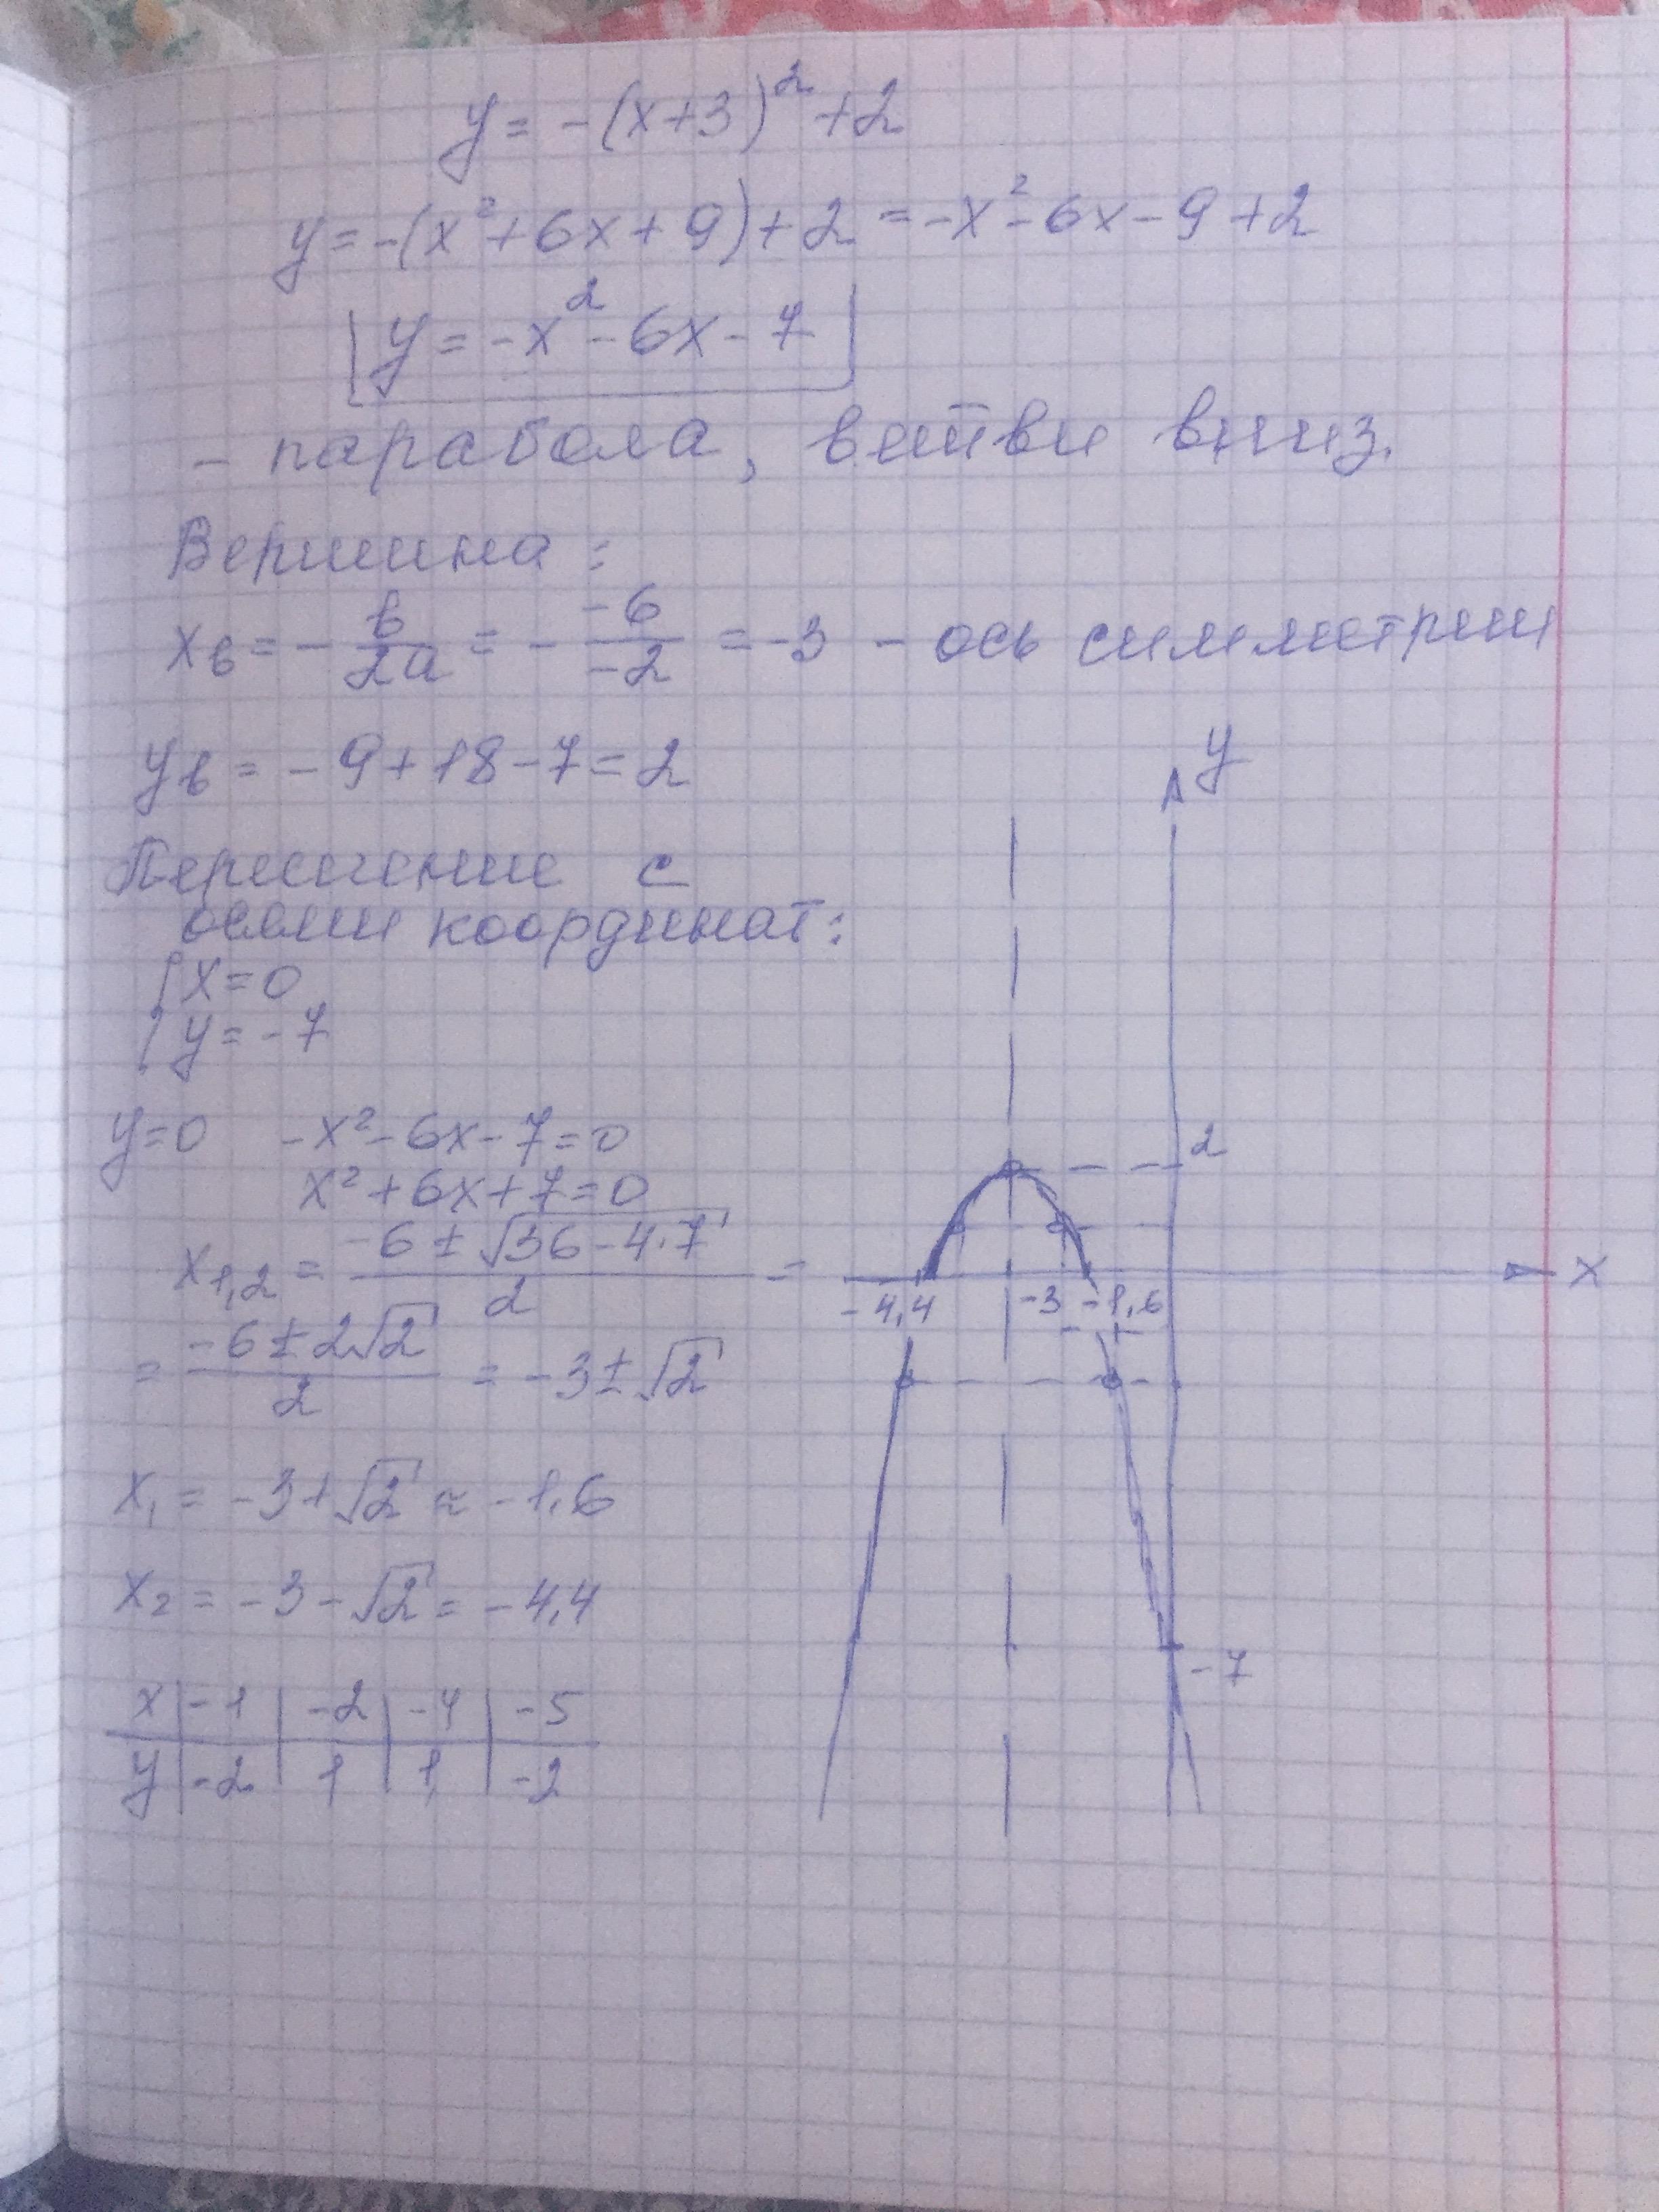 y = -(x+3)² + 2
y = -(x² + 6x + 9) + 2 = -x² - 6x - 9 + 2
y = -x² - 6x - 7
- парабола, ветви вниз.
Вершина:
xв = - в/2a = - -6/-2 = -3 - ось симметрии
yв = -9 + 18 - 7 = 2
Пересечение с
осями координат:
{ x = 0
{ y = -7
y = 0 -x² - 6x - 7 = 0
x² + 6x + 7 = 0
x1,2 = (-6 ± √(36 - 4·7))/2 =
= (-6 ± 2√2)/2 = -3 ± √2
x1 = -3 + √2 ≈ -1,6
x2 = -3 - √2 = -4,4
x | -1 | -2 | -4 | -5
y | -2 | 1 | 1 | -2
y
2
-4,4 -3 -1,6 x
-7